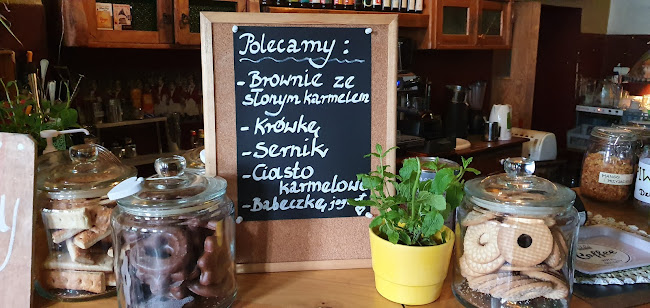 Polecamy :
- Brownie ze
słonym karmelem
- Krówkę
- Sernik
- Ciasto
karmelowe
- Babeczkę jog
Coffee